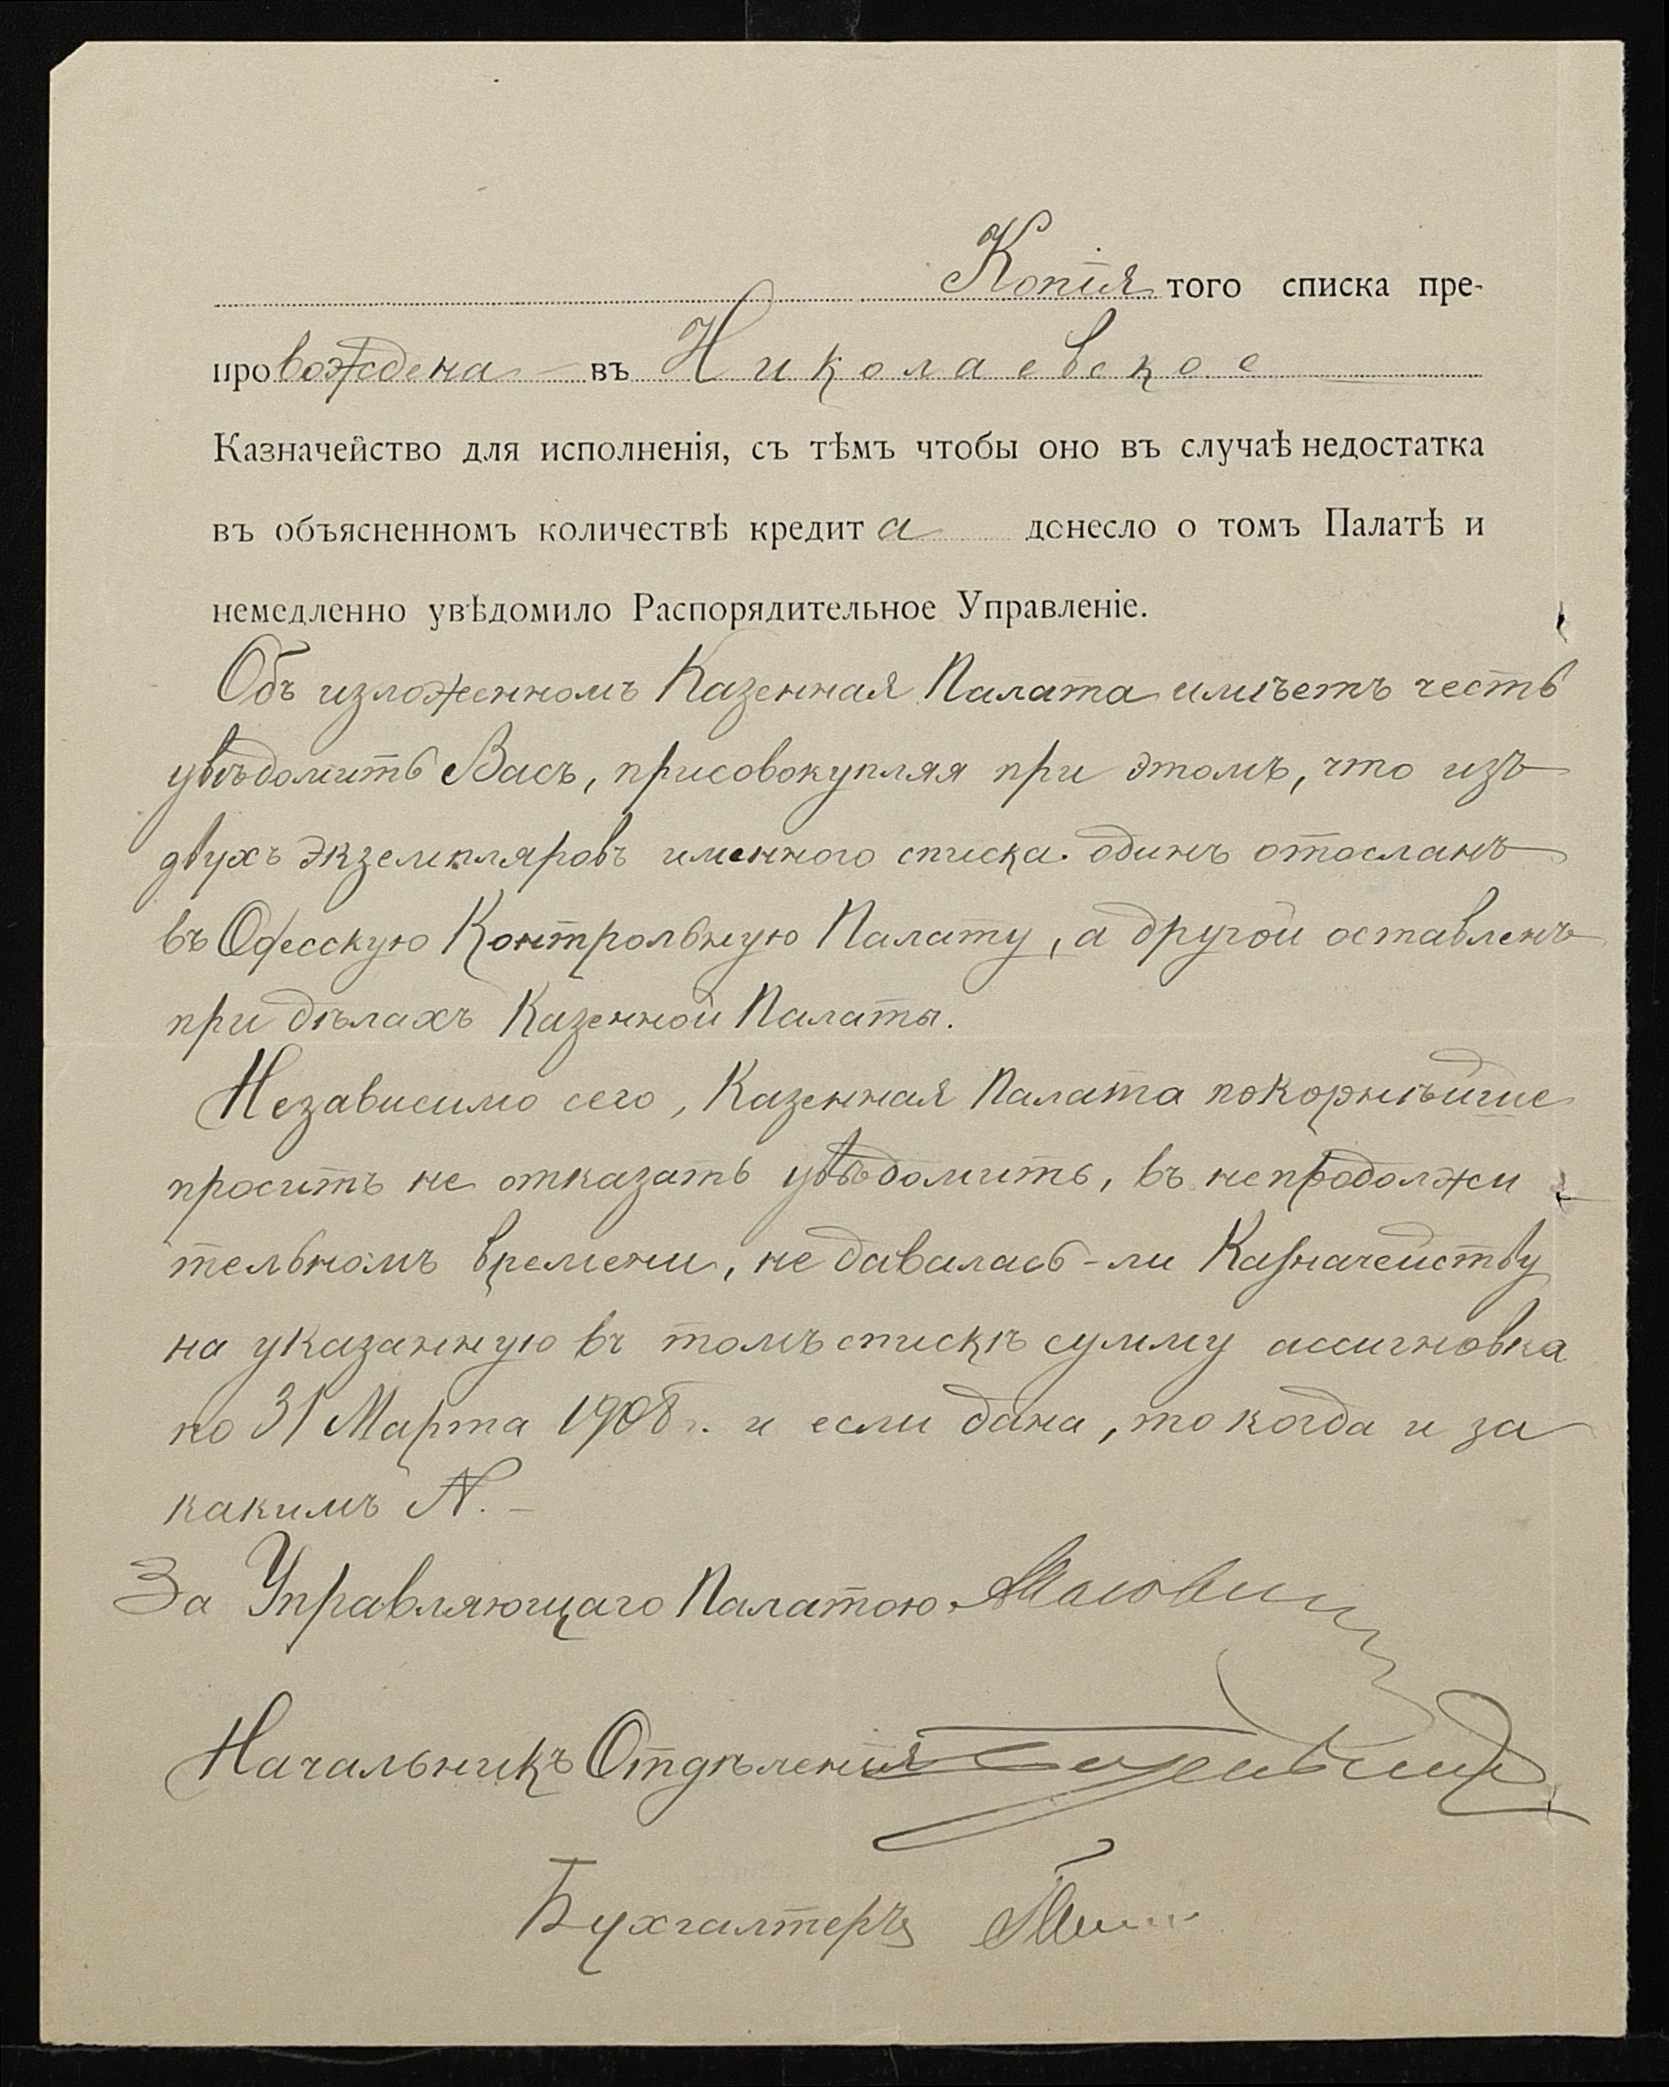 Копія того списка пре-
провождена — въ Николаевское
Казначейство для исполненія, съ тѣмъ чтобы оно въ случаѣ недостатка
въ объясненномъ количествѣ кредита донесло о томъ Палатѣ и
немедленно увѣдомило Распорядительное Управленіе.
Объ изложенномъ Казенная Палата имѣетъ честь
увѣдомить Васъ, присовокупляя при этомъ, что изъ
двухъ экземпляровъ именного списка одинъ отосланъ
въ Одесскую Контрольную Палату, а другой оставленъ
при дѣлахъ Казенной Палаты.
Независимо сего, Казенная Палата покорнѣйше
проситъ не отказать увѣдомить, въ непродолжи
тельномъ времени, не давалась-ли Казначейству
на указанную въ томъ спискѣ сумму ассигновка
по 31 Марта 1908 г. и если дана, то когда и за
какимъ N. —
За Управляющаго Палатою
Начальникъ Отдѣленія
Бухгалтеръ